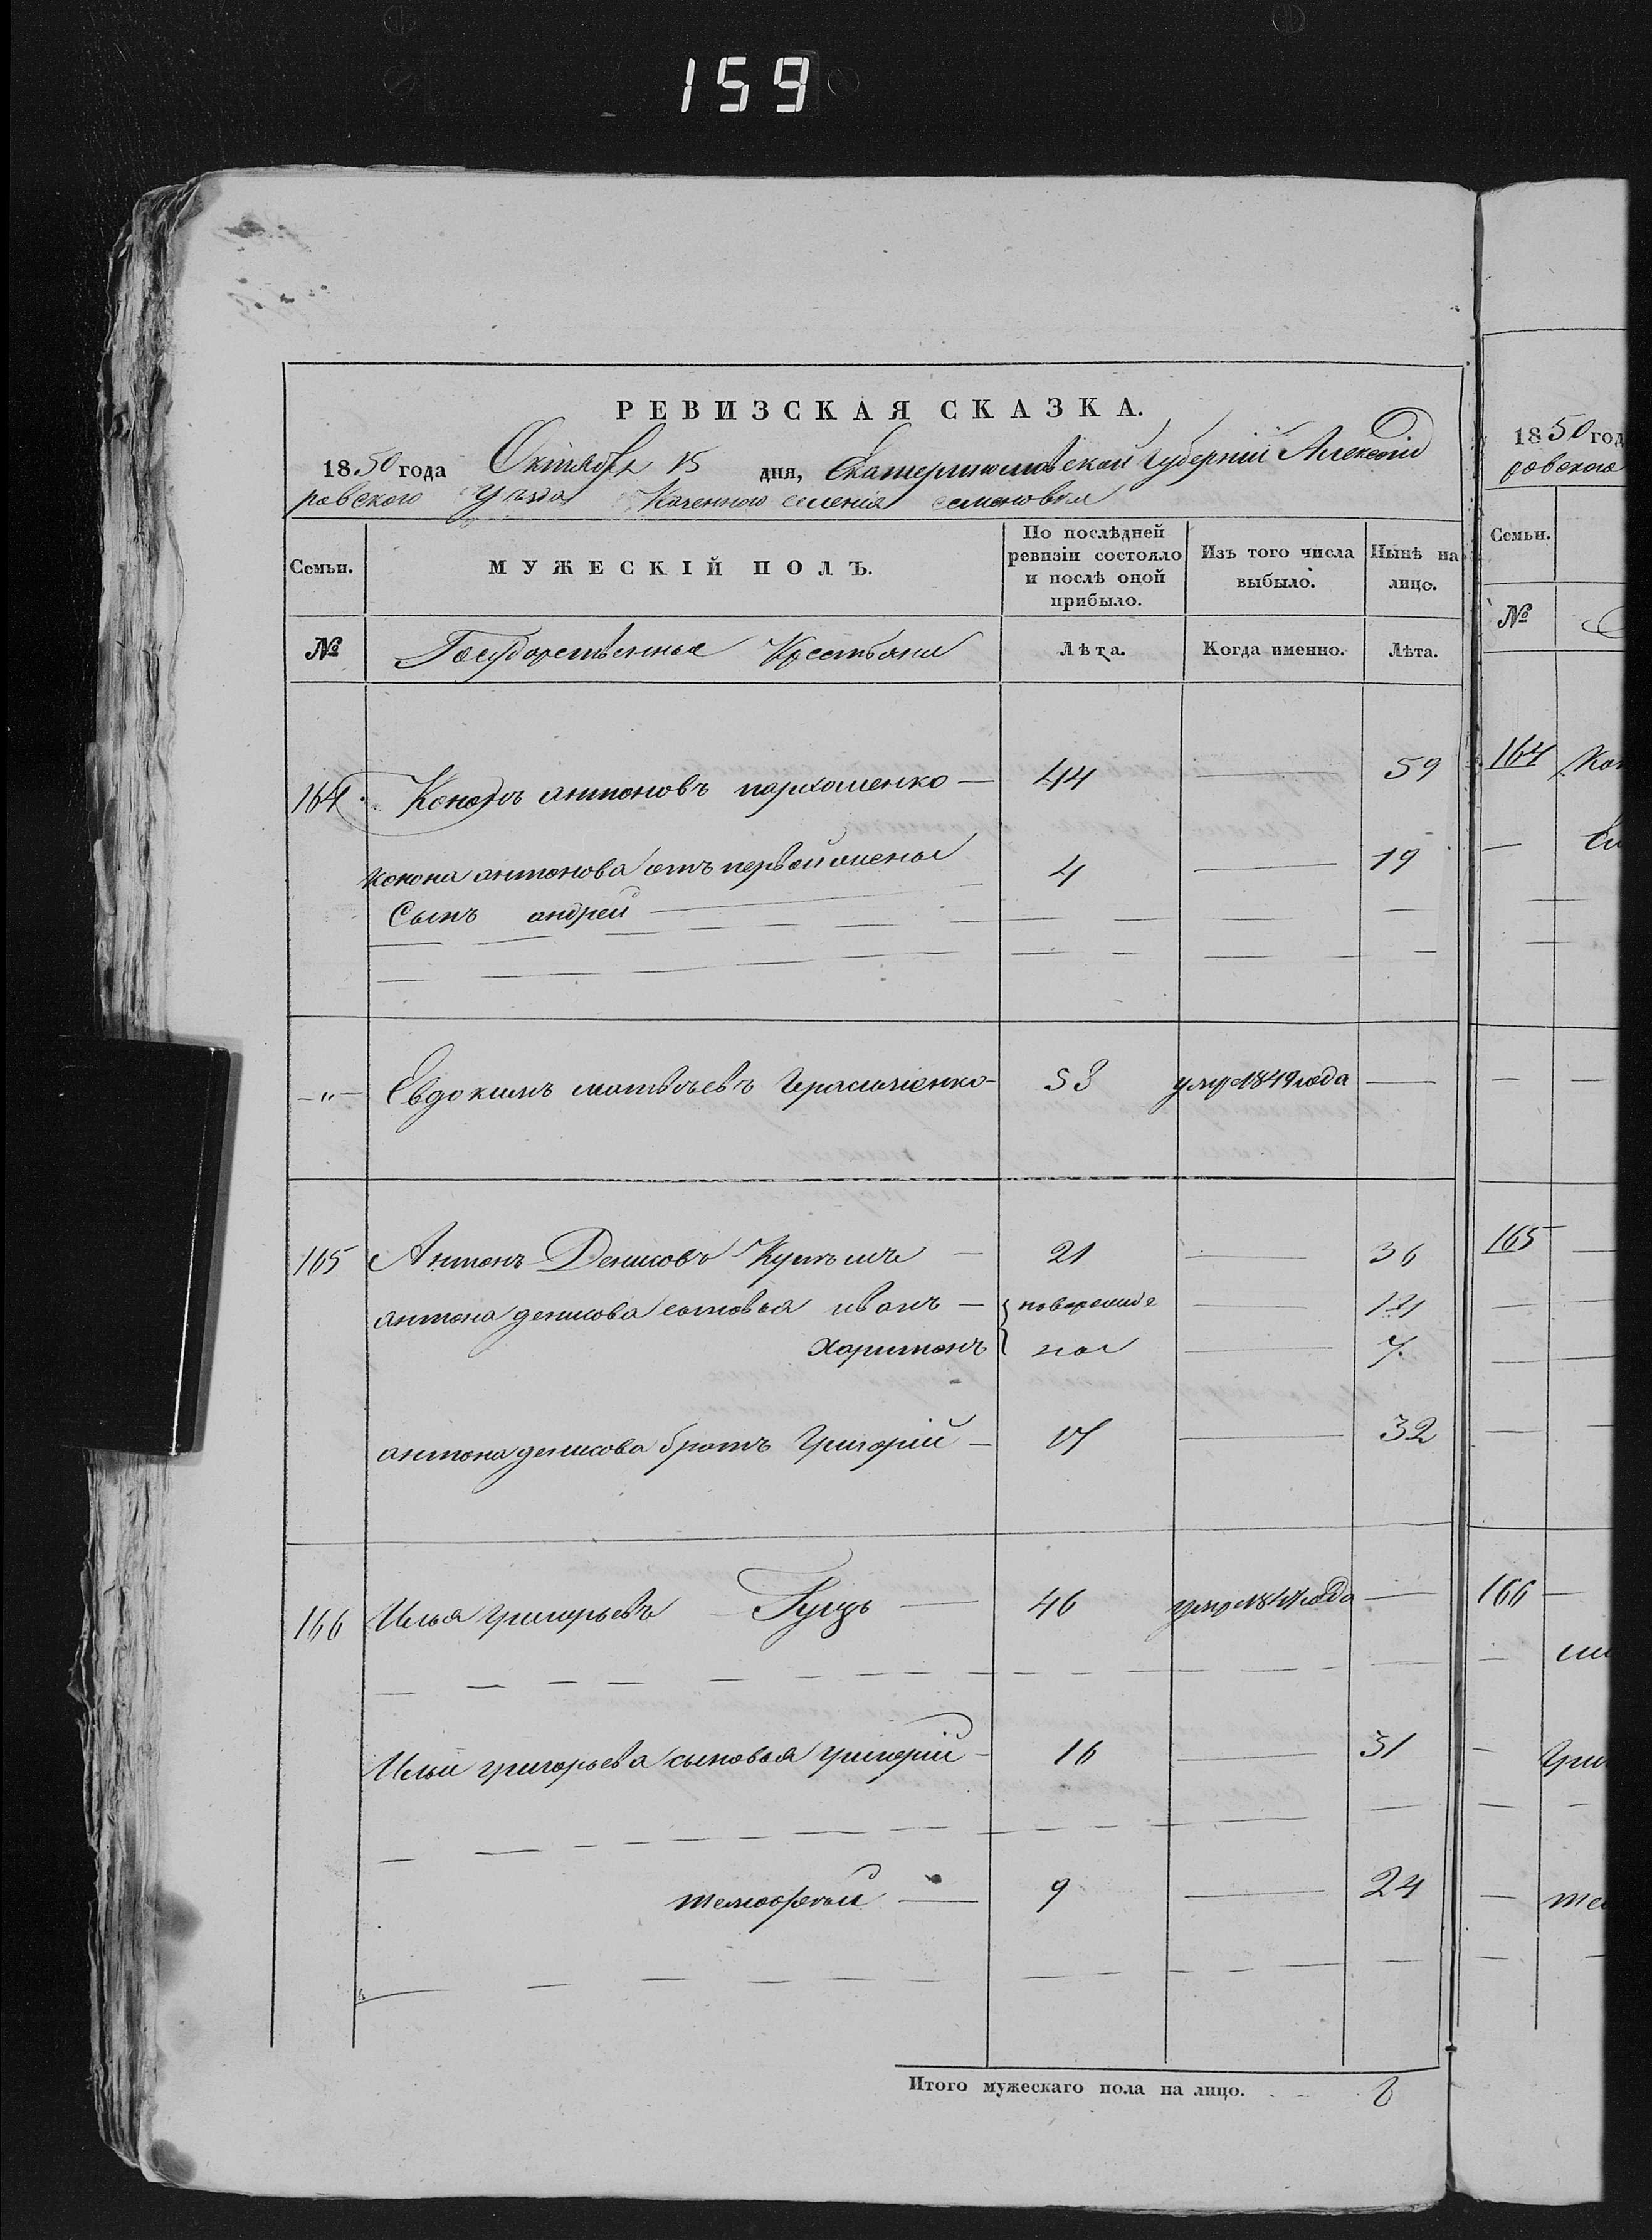 159
РЕВИЗСКАЯ СКАЗКА.
1850 года Октября 15 дня, Екатеринославской Губерніи Александ
ровского Уезда Казенного селенія семеновки
Семьи.
МУЖЕСКІЙ ПОЛЪ.
По послѣдней ревизіи состояло и послѣ оной прибыло.
Изъ того числа выбыло.
Нынѣ на лицо.
№ Государственные Крестьяне Лѣта. Когда именно. Лѣта.
164 Кононъ антоновъ пархоменко — 44 — 59
Конона антонова отъ первой жены 4 — 19
Сынъ андрей —
—„— Евдокимъ матвѣевъ Герасименко — 53 умр 1849 года —
165 Антонъ Денисовъ — 21 — 36
антона денисова сыновья иванъ — новорожде —
харитонъ ные — 7.
антона денисова братъ Григорій — 17 — 32
166 Илья григорьевъ — 46 —
Ильи григорьева сыновья григорій — 16 — 31
— 9 — 24
Итого мужескаго пола на лицо. 8
1850 год
ровского
Семьи.
№
164 Кон
165
166
Гри